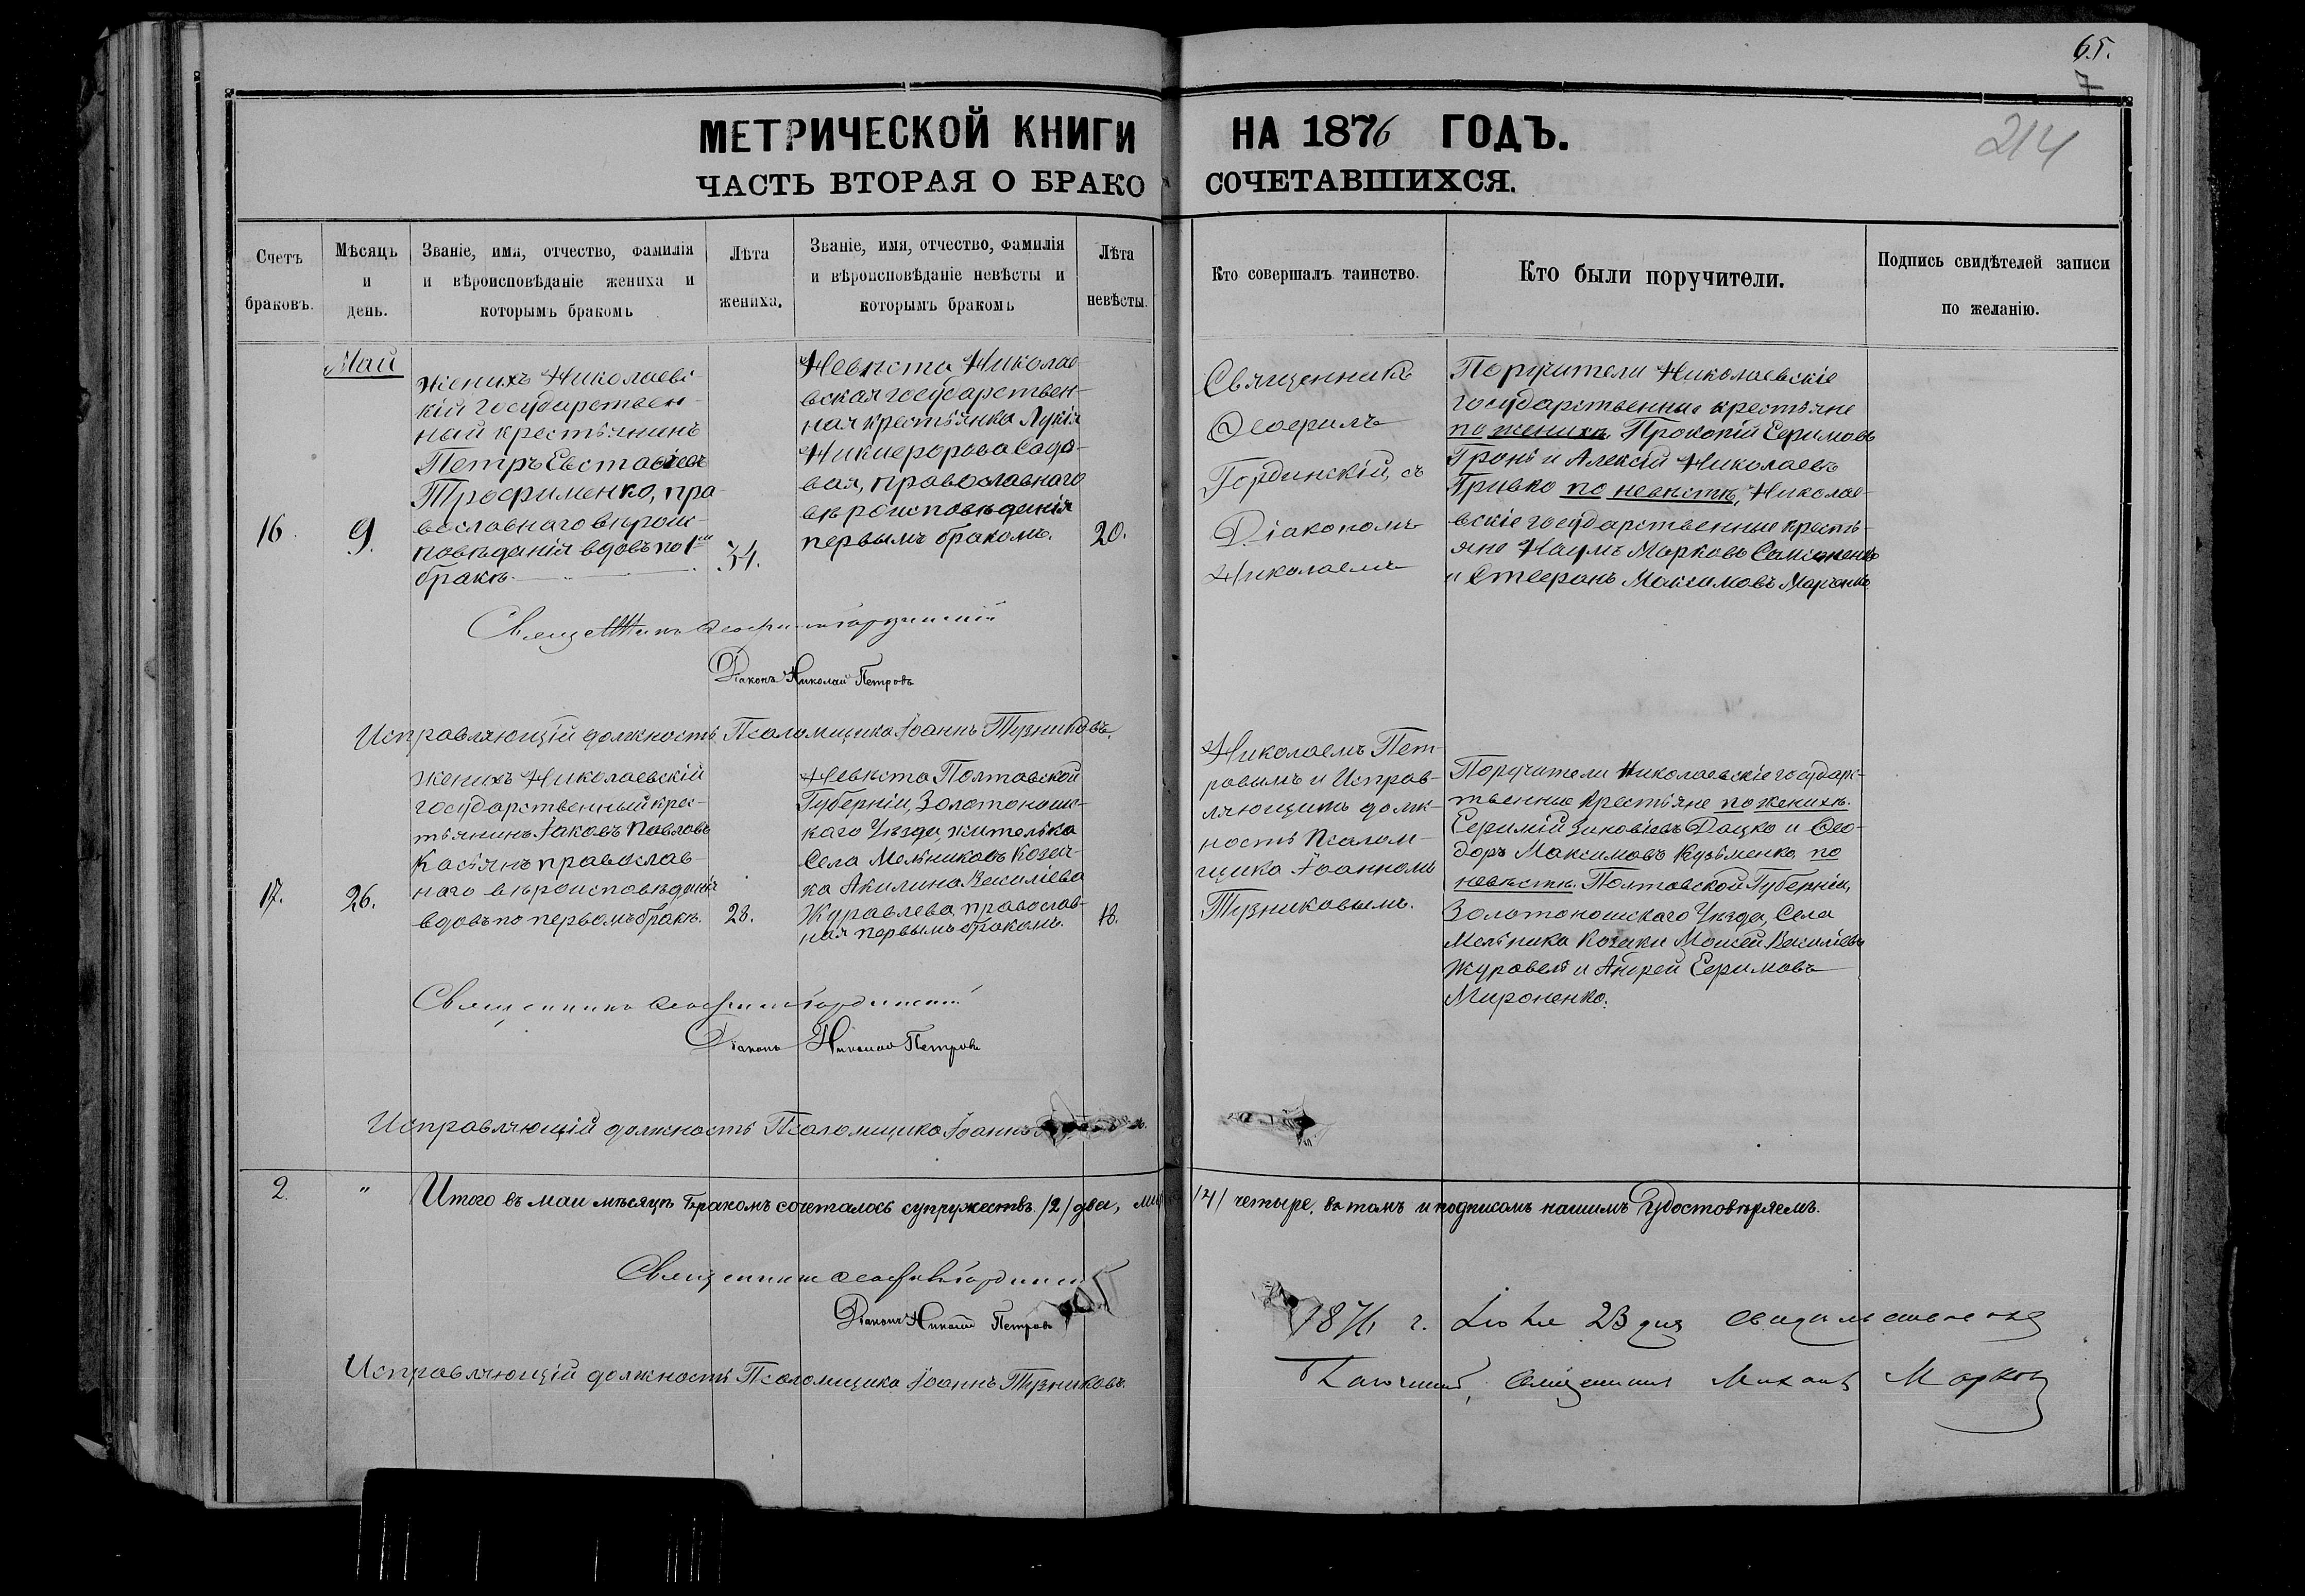 65.
7
214
МЕТРИЧЕСКОЙ КНИГИ НА 1876 ГОДЪ.
ЧАСТЬ ВТОРАЯ О БРАКО СОЧЕТАВШИХСЯ.
Счетъ браковъ.
Мѣсяцъ и день.
Званіе, имя, отчество, фамилія и вѣроисповѣданіе жениха и которымъ бракомъ
Лѣта жениха.
Званіе, имя, отчество, фамилія и вѣроисповѣданіе невѣсты и которымъ бракомъ
Лѣта невѣсты.
Кто совершалъ таинство.
Кто были поручители.
Подпись свидѣтелей записи по желанію.
16.
Май
9.
Женихъ Николаевс-
кій государствен-
ный крестьянинъ
Петръ Евстафіевъ
Трофименко, пра-
вославнаго вѣроис-
повѣданія вдовъ по 1мъ
бракѣ.
34.
Невѣста Николае-
вская государствен-
ная крестьянка Лукія
Никифорова Садо-
вая, православнаго
вѣроисповѣданія
первымъ бракомъ.
20.
Священникъ
Ѳеофилъ
Гординскій, съ
Діакономъ
Николаемъ
Поручители Николаевскіе
государственные крестьяне
по женихѣ, Прокопій Ефимовъ
Тронь и Алексій Николаевъ
Гривко по невѣстѣ, Николае-
вскіе государственные кресть-
яне Наумъ Марковъ Самоненко
и Стефанъ Максимовъ Марченко
Священникъ Ѳеофилъ Гординскій
Діаконъ Николай Петровъ
Исправляющій должность Псаломщика Іоаннъ Тузниковъ.
17.
26.
Женихъ Николаевскій
государственный крес-
тьянинъ Іаковъ Павловъ
Касьянъ православ-
наго вѣроисповѣданія
вдовъ по первомъ бракѣ.
28.
Невѣста Полтавской
Губерніи, Золотонош-
каго Уѣзда, жителька
Села Мельниковъ Козач-
ка Акилина Василіева
Журавлева православ-
ная первымъ бракомъ.
18.
Николаемъ Пет-
ровымъ и Исправ-
ляющимъ долж-
ность Псалом-
щика Іоанномъ
Тузниковымъ.
Поручители Николаевскіе государс-
твенные крестьяне по женихѣ.
Ефимій Зиновіевъ Дацко и Ѳео-
доръ Максимовъ Кузьменко, по
невѣстѣ. Полтавской Губерніи,
Золотоношскаго Уѣзда, Села
Мельника Козаки Моисей Василіевъ
Журавель и Андрей Ефимовъ
Мироненко.
Священникъ Ѳеофилъ Гординскій
Діаконъ Николай Петровъ
Исправляющій должность Псаломщика Іоаннъ
2.
"
Итого въ маи мѣсяцѣ бракомъ сочеталось супружествъ /2/ два, /4/ четыре. въ томъ и подписомъ нашимъ удостовѣряемъ.
Священникъ Ѳеофилъ Гординскій
Діаконъ Николай Петровъ
Исправляющій должность Псаломщика Іоаннъ Тузниковъ.
1876 г. Іюня 23 дня свидѣтельствовалъ
Благочинный, Священникъ Михаилъ Марковъ